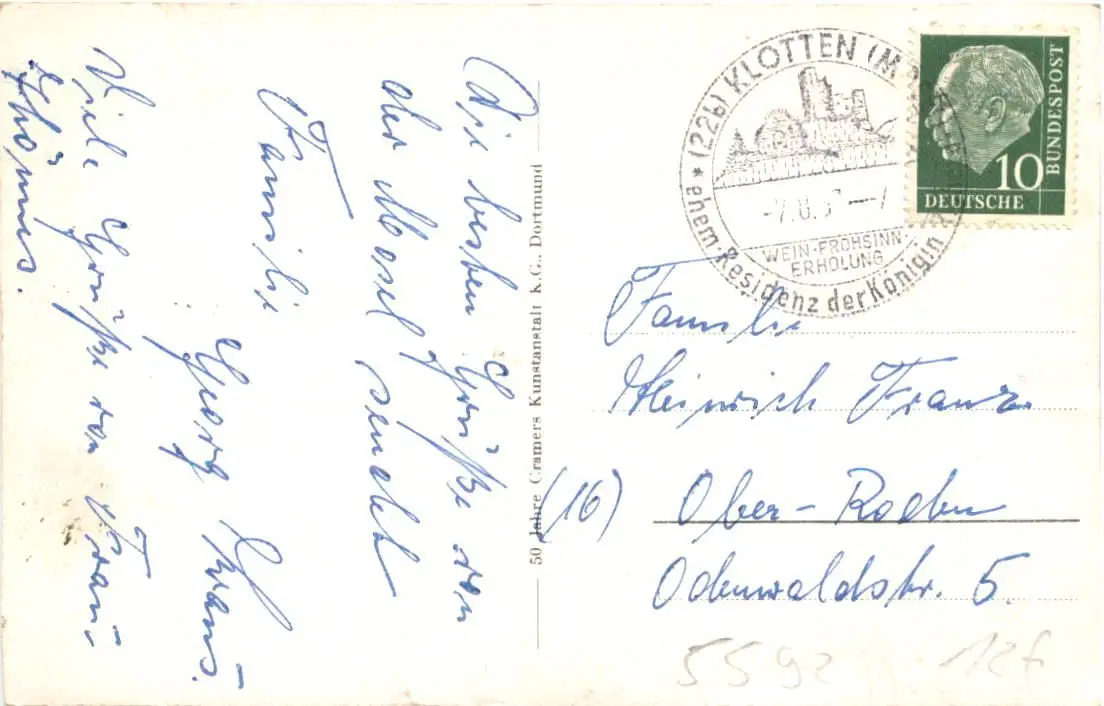 Die besten Grüße von
der Mosel sendet
Familie
Georg Kraus.
Viele Grüße von Frau
Thönnes.
50 Jahre Cramers Kunstanstalt K.G., Dortmund
(22b) KLOTTEN
WEIN-FROHSINN-
ERHOLUNG
ehem. Residenz der Königin
DEUTSCHE
BUNDESPOST
10
Familie
Heinrich Franz
(16) Ober-Roden
Odenwaldstr. 5.
5592 12f